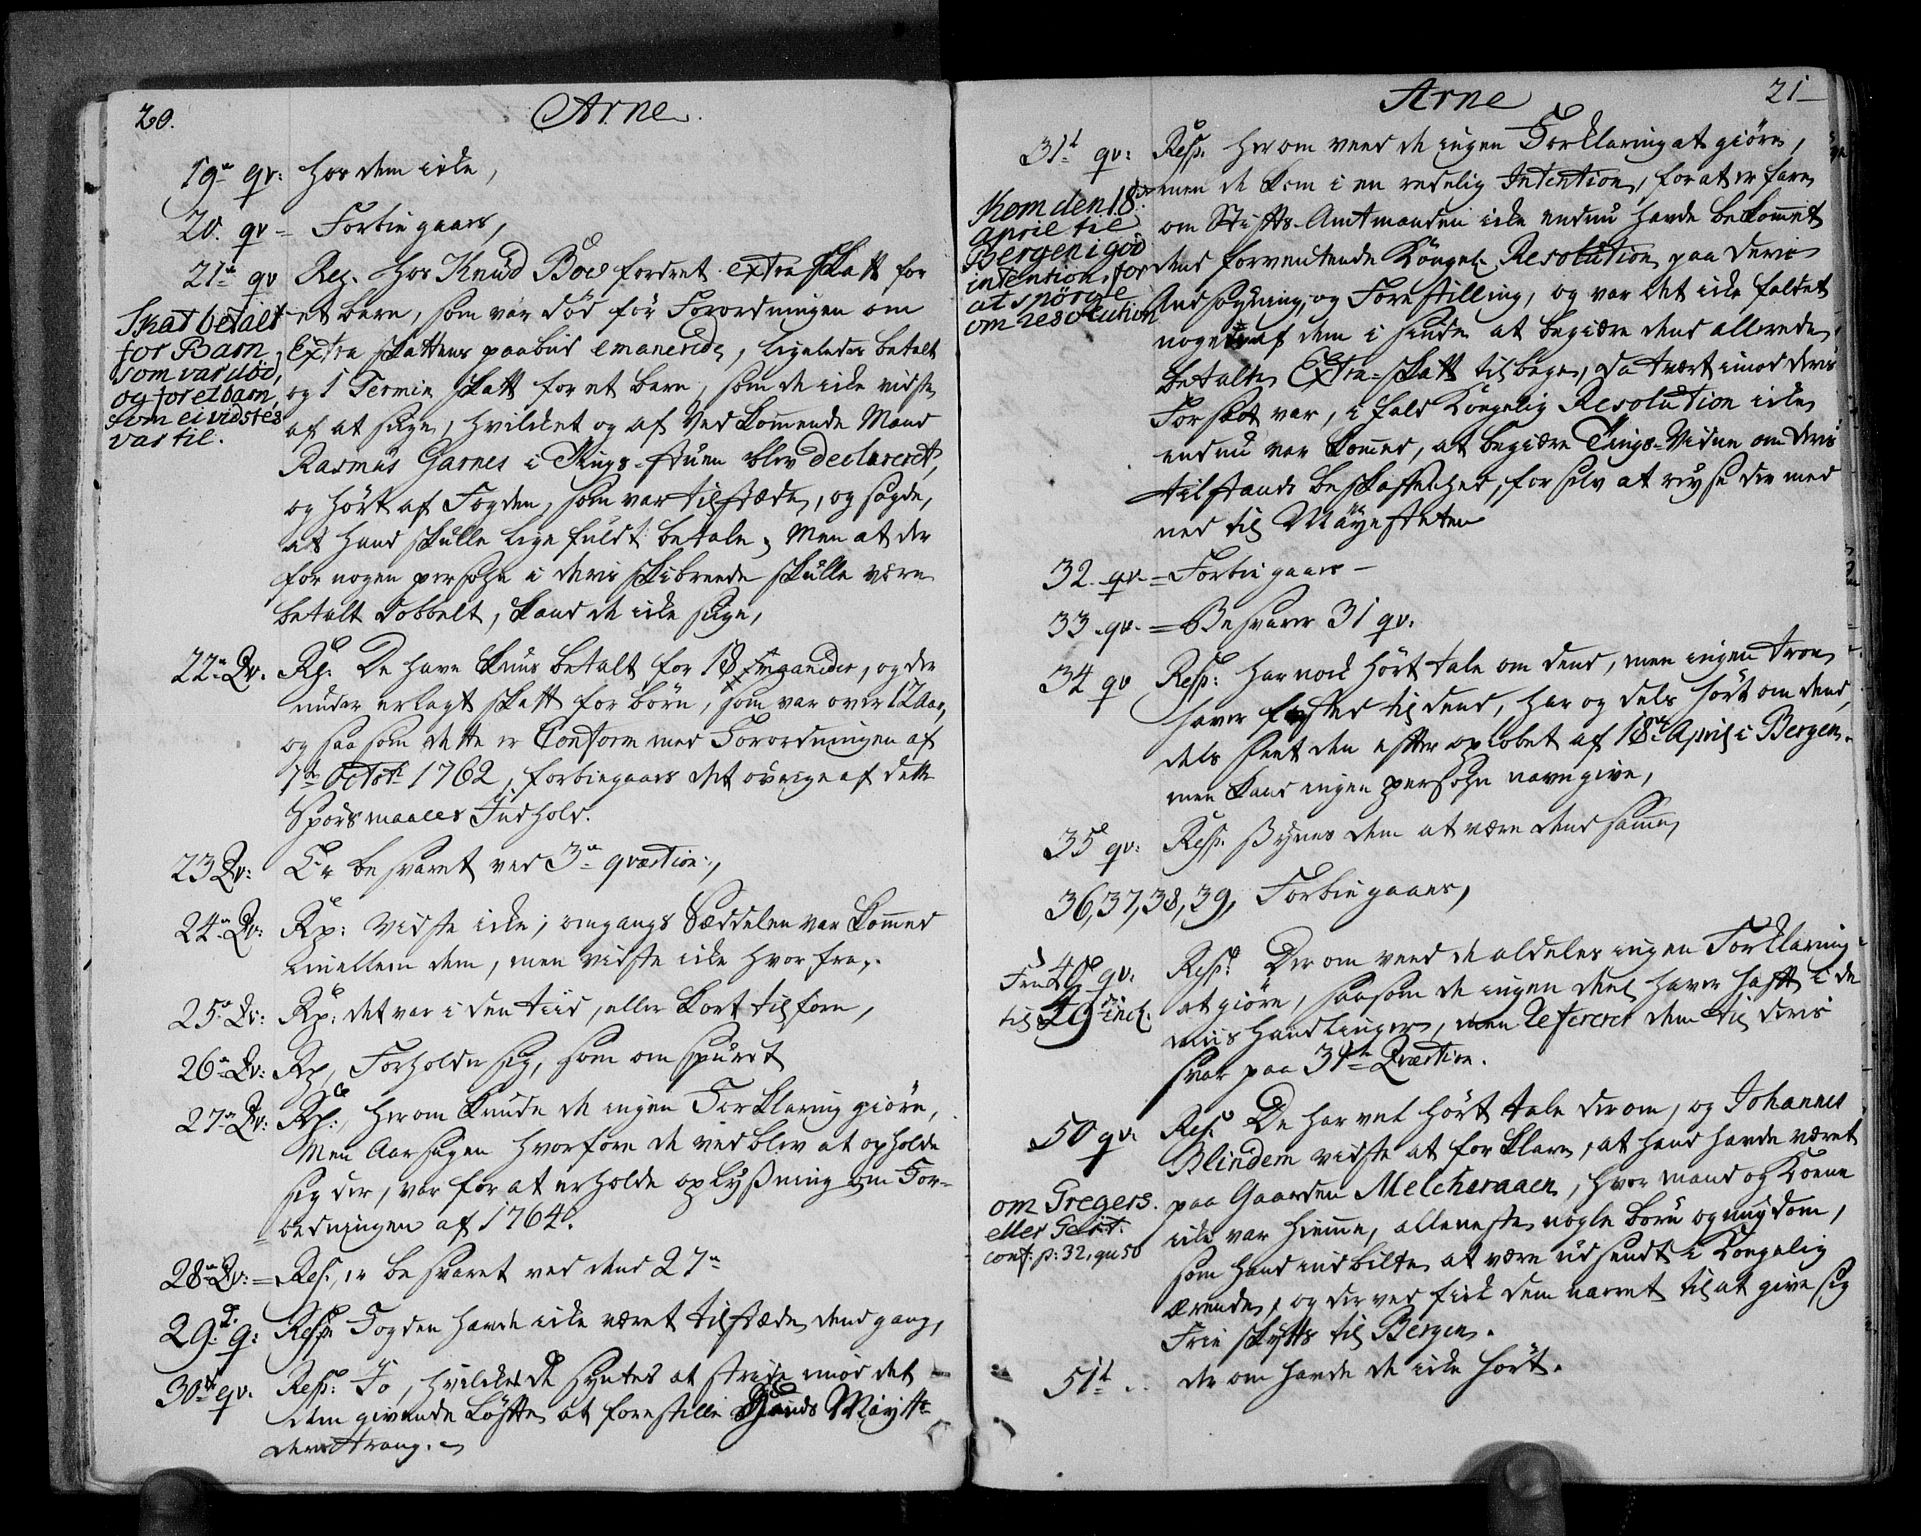 20.
Arne.
19de qv: hos dem icke,
20. qv = Forbiegaaes,
21de qv Res. hos Knud Boe fordret extra Skatt for
et barn, som var död för Forordningen om
Extra Skattens paabud emanerede, ligeledes betalt
og 1 Termin Skatt for et barn, som de icke vidste
af at sige, hvilcket og af Vedkommende Mand
Rasmus Garnes i Tings-stuen blev declareret,
og hört af Fogden, som var tilstæde, og sagde,
at hand skulle lige fuldt betale, Men at der
for nogen persohn i deris skibreede skulle være
betalt dobbelt, kand de icke sige,
Skat betalt
for Barn
som var död,
og for et barn,
som ei vidstes
var til.
22de Qv. Rp: De have kuns betalt for 18 , og der
under erlagt Skatt for börn, som var over 12 Aar,
og saasom dette er Conform med Forordningen af
1de Octobr 1762, forbiegaaes det övrige af dette
Spörsmaales Indhold.
23 Qv: Er besvaret ved 3de qvæstion,
24de Qv: Rp: Vidste icke, omgangs Sæddelen var kommed
imellem dem, men vidste icke hvorfra,
25de Qv: Rp: det var i den tiid, eller kort tilforn,
26de Qv: Rp, Forholder sig, som om spurdt
27de Qv: Rp:, herom kunde de ingen Forklaring giöre,
Men Aarsagen hvorfore de vedblev at opholde
sig der, var for at erholde oplyßning om For-
ordningen af 1764.
28de Qv: = Res., er besvaret ved dend 27de
29. q: Resp Fogden havde icke været tilstæde dend gang,
30te qv. Resp: Jo, hvilcked de syntes at stride imod det
dem givende Löfte at forestille Hands Mayttt
deres trang.
21
Arne
31te qv: Resp. herom veed de ingen Forklaring at giöre,
men de kom i en redelig Intention, for at erfare
om Stifts-Amtmanden icke endnu havde bekommet
dend forventende Kongel. Resolution paa deris
Ansögning, og Forestilling, og var det icke faldet
nogen af dem i sinde at begiære dend allerede
betalte Extra-Skatt tilbage, da tvært imod deris
Forsæt var, i fald Kongelig Resolution icke
endnu var kommed, at begiære Tings-Vidne om deris
tilstands beskaffenhed, for selv at reyse der med
ned til Mayesteten
Kom den 18de
april til
Bergen i god
intention, for
at spörge
om resolution
32. qv = Forbiegaaes -
33. qv. = Besvares 31 qv.
34 qv Resp: har nock hört tale om dend, men ingen troe
haver fæsted til dend, har og dels hört om dend,
dels seet den efter oplöbet af 18de April i Bergen.
men kand ingen persohn navngive,
35 qv: Resp. Synes dem at være dend samme
36, 37, 38, 39, Forbiegaaes,
Fra 40 qv: Resp: Der om veed de aldeles ingen Forklaring
til 49de incl. at giöre, saasom de ingen deel haver haft i de
miishandlinger, men refererer dem til deris
svar paa 34te Qvæstion.
50 qv. Res. De har vel hört tale derom, og Johannes
Blindem vidste at forklare, at hand havde været
paa Gaarden Melcheraaen, hvor mand og Kone
icke var hiemme, alleneste nogle börn og ungdom,
som hand indbildte at være udsendt i Kongelig
ærende, og derved fick dem narret til at give sig
Frie skytts til Bergen.
om Gregers.
eller Gerit.
conf. p: 32, qu 50
51te . . der om havde de icke hört.